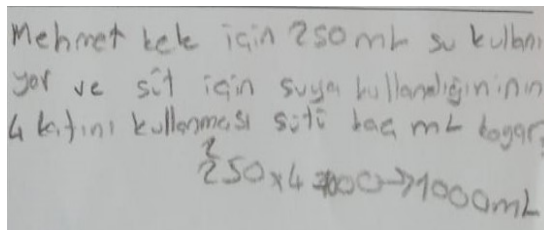 Mehmet kek için 250 mL su kullanı
yor ve süt için suya kullandığınının
4 katını kullanması sütü kaç mL koyar?
2
250x4 1000→1000mL